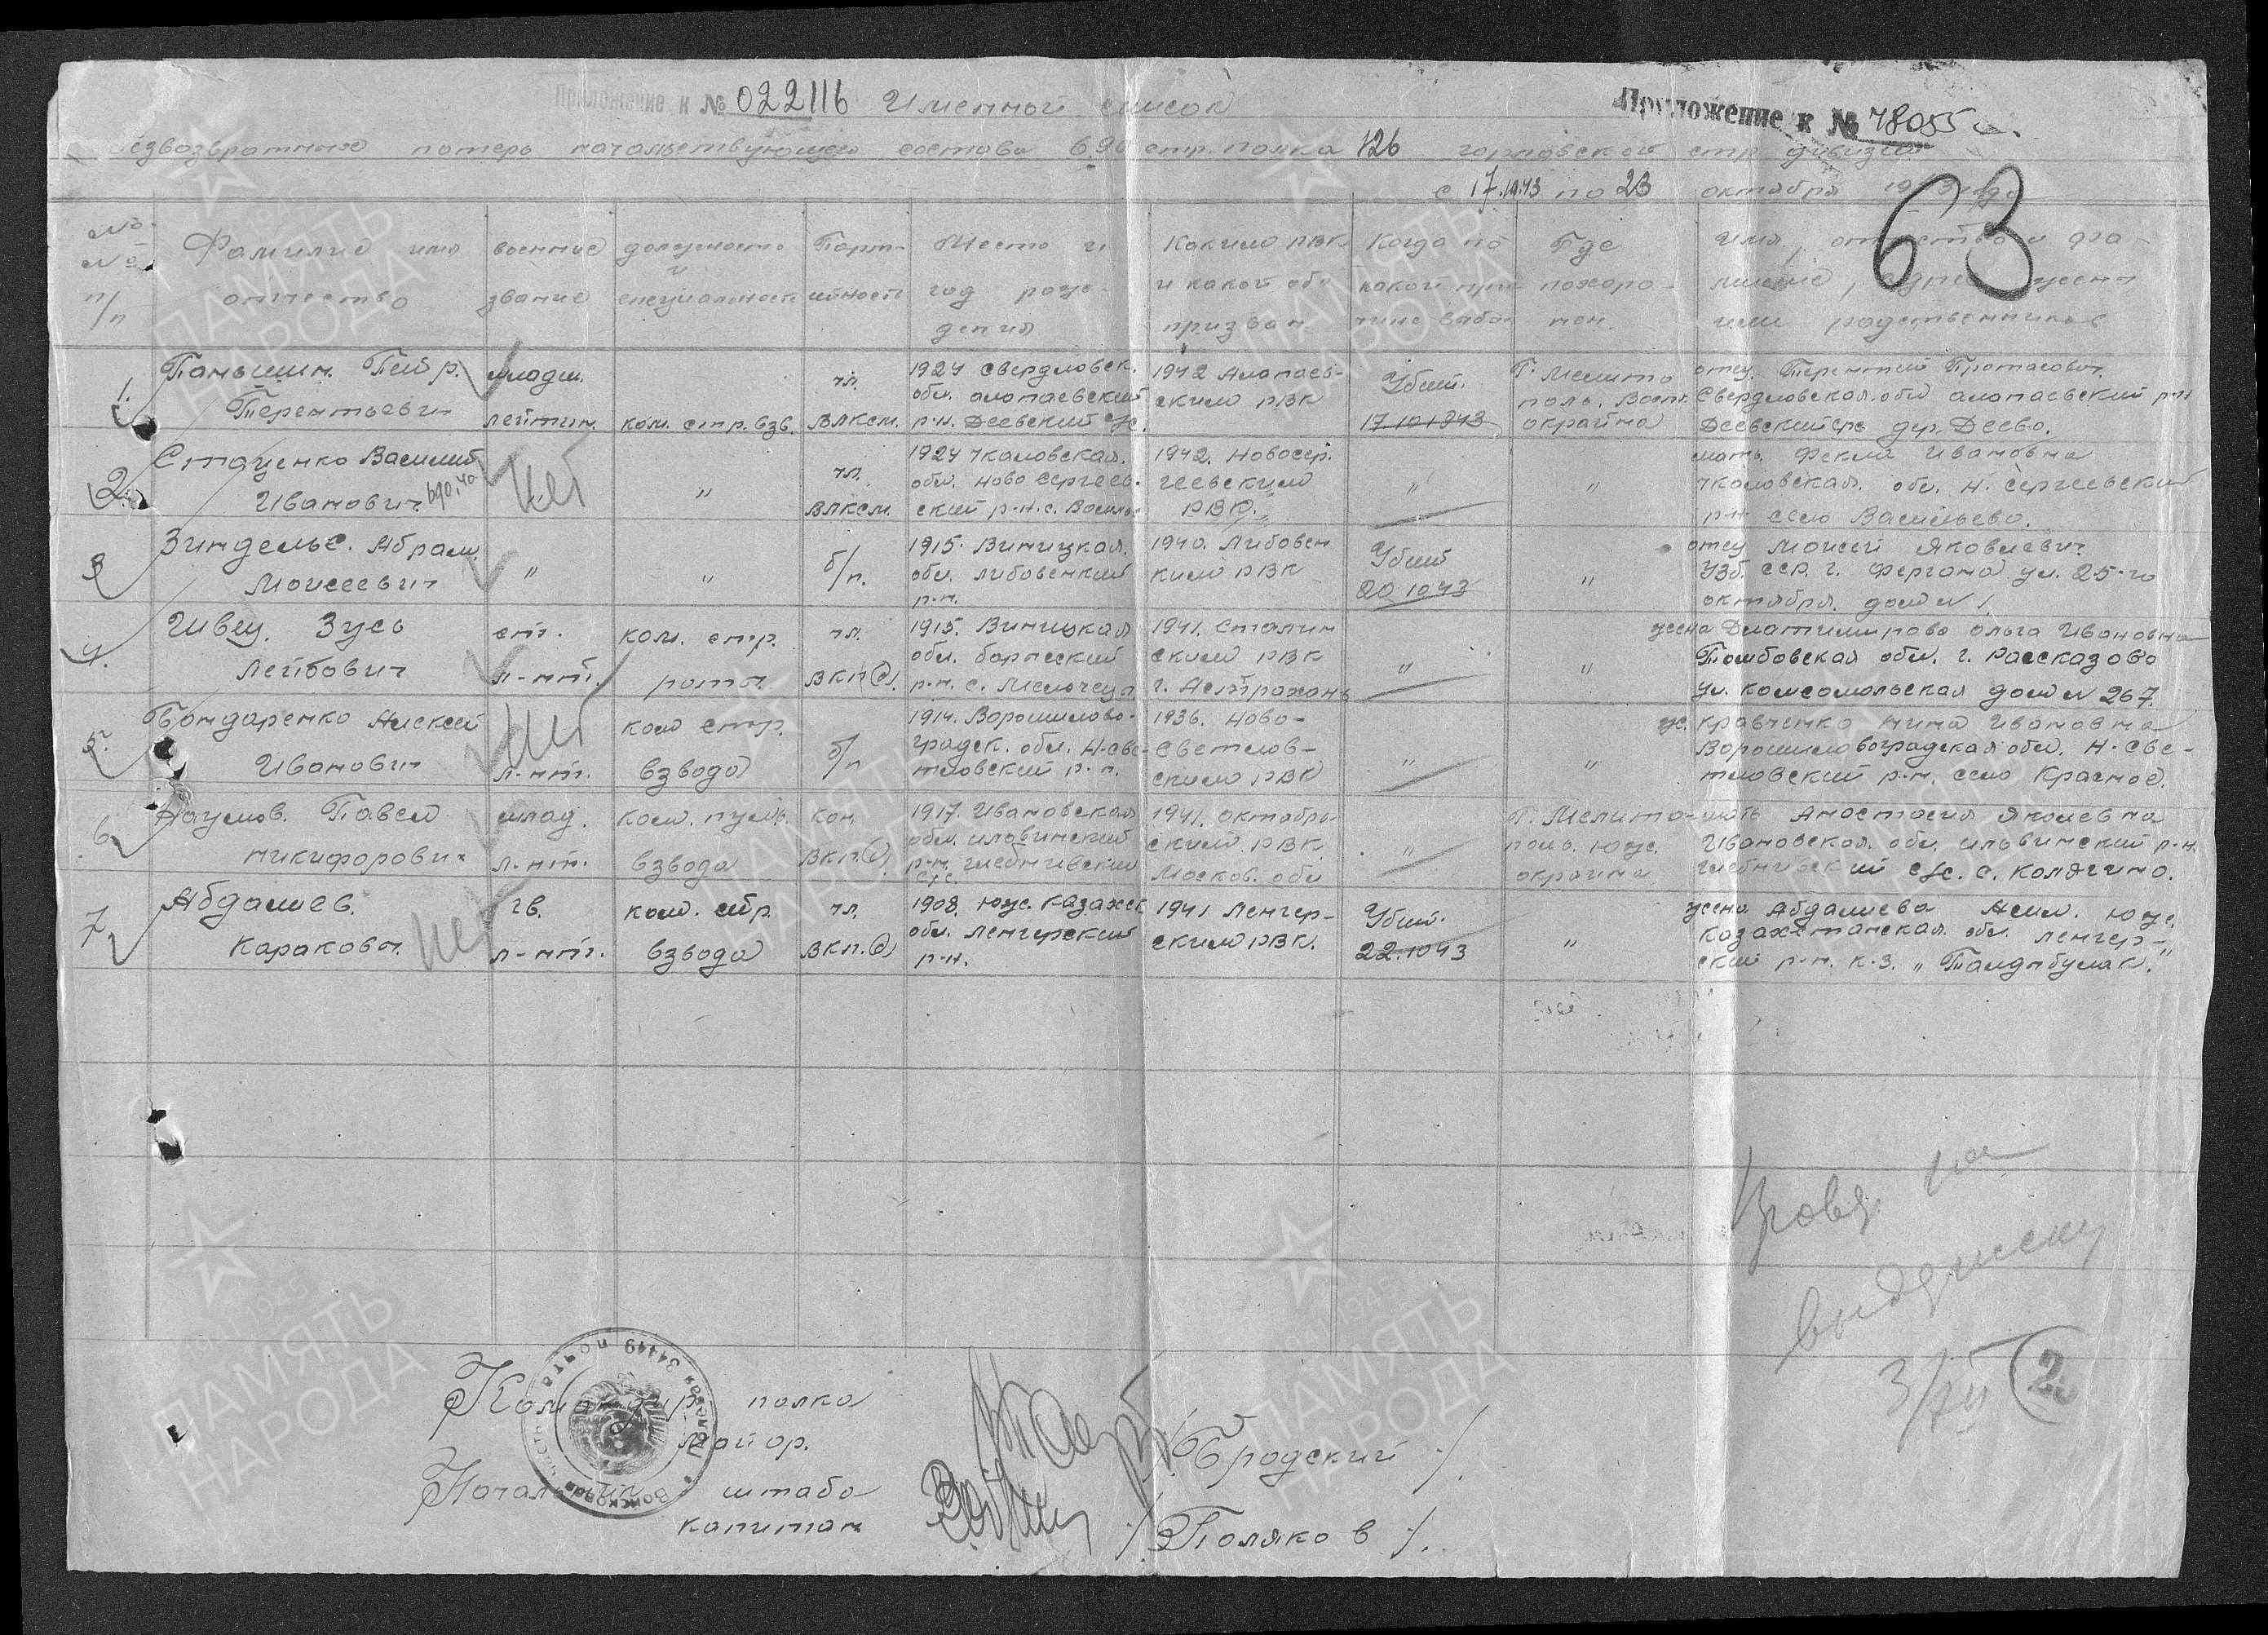 Приложение к № 022116 Именной список
Приложение к № 48055 с.
безвозвратных потерь начальствующего состава 690 стр. полка 126 горловской стр. дивизии
с 17.10.43 по 23 октября 1943 года
63
№ № п/п
Фамилие имя отчество
военные звание
должность и специальность
Партийность
Место и год рождения
Каким РВК и какой обл призван
Когда по какой причине выбол
Где похоронен.
Имя, отчество и фамилие, адрес жены или родственников
1. Паньшин. Петр.
Терентьевич
младш. лейтин.
ком. стр. взв.
чл. ВЛКСМ.
1924 Свердловск. обл. алапаевский р-н. Деевский с/с.
1942 Алапаевским РВК
Убит. 17 10 1943
Г. Мелитополь. Вост. окрайна
отец. Терентий Протасович
Свердловская. обл алапаевский р-н
Деевский с/с дер. Деево.
2. Стаценко Василий
Иванович
нет
"
чл. ВЛКСМ.
1924 Чкаловская. обл. Ново Сергеевский р-н. с. Василь
1942. Новосергеевским РВК.
"
"
мать. Фекла Ивановна
Чкаловская. обл. Н. Сергеевский
р-н село Васильево.
3 Зиндельс. Абрам.
Моисеевич
"
"
б/п.
1915. Виницкая. обл. Либовенкий р-н.
1940. Либовенким РВК
Убит 20 10 43
"
отец Моисей Яковлевич
Узб. ССР. г. Фергана ул. 25-го
октября. дом N 1.
4. Швец. Зусь
Лейбович
ст. л-нт.
ком. стр. роты.
чл. ВКП(б).
1915. Виницкая обл. барский р-н. с.
1941. Сталинским РВК г. Астрахань
"
"
жена Ольга Ивановна
Томбовская обл. г. Рассказово
ул. Комсомольская дом N 267.
5. Бондаренко Алексей
Иванович
нет
л-нт.
ком стр. взвода
б/п
1914. Ворошиловоградск. обл. Н-светловский р-н.
1936. Ново-светловским РВК
"
"
ж. Кравченко Нина Ивановна
Ворошиловоградская обл. Н-Све-
тловский р-н. село Красное.
6 Наумов. Павел
Никифорович
млад. л-нт.
ком. пулем. взвода
кан. ВКП.(б)
1917. Ивановская обл. ильвинский р-н. с/с.
1941. Октябрьским РВК. Москов. обл
"
Г. Мелитополь. Юж. окраина
мать Анастасия Яковлевна
Ивановская. обл. ильвинский р-н.
с/с. с. Колягино.
7 Абдалиев.
Каракович.
нет
гв. л-нт.
ком. стр. взвода
чл. ВКП.(б)
1908. Юж. Казахск обл. Ленгерский р-н.
1941 Ленгерским РВК.
Убит. 22.10 43
"
жена Абдалиева Юж.
Казахстанская. обл. Ленгер-
ский р-н. к-з. „Талдыбулак."
на
3/XII
2
Командир полка
майор.
/Бродский/.
Начальник штаба
капитан
/Поляков/.
Войсковая часть Полевая почта 34449
ПАМЯТЬ НАРОДА